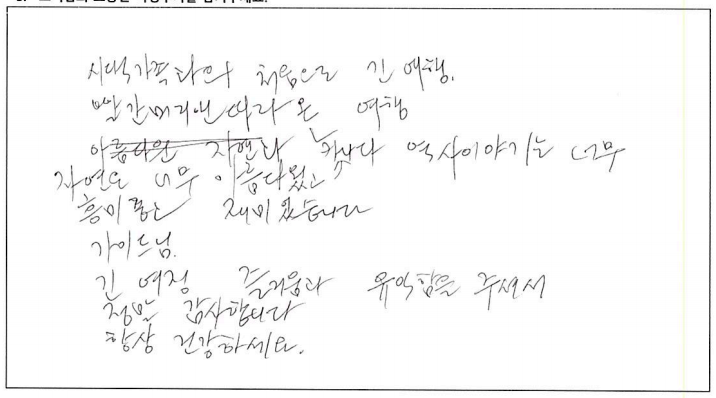 시댁가족과의 처음으로 긴 여행.
빨간머리앤 따라 온 여행
캐나다 역사이야기는 너무
자연도 너무 아름다웠고
흥미롭고 재미있습니다
가이드님.
긴 여정 즐거움과 유익함을 주셔서
정말 감사합니다
항상 건강하세요.